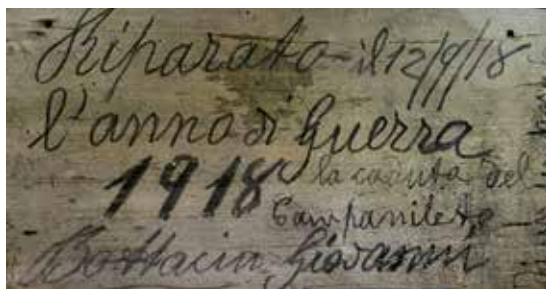 Riparato il 12/9/18
l'anno di Guerra
1918 la caduta del
Campanile
Bottacin Giovanni